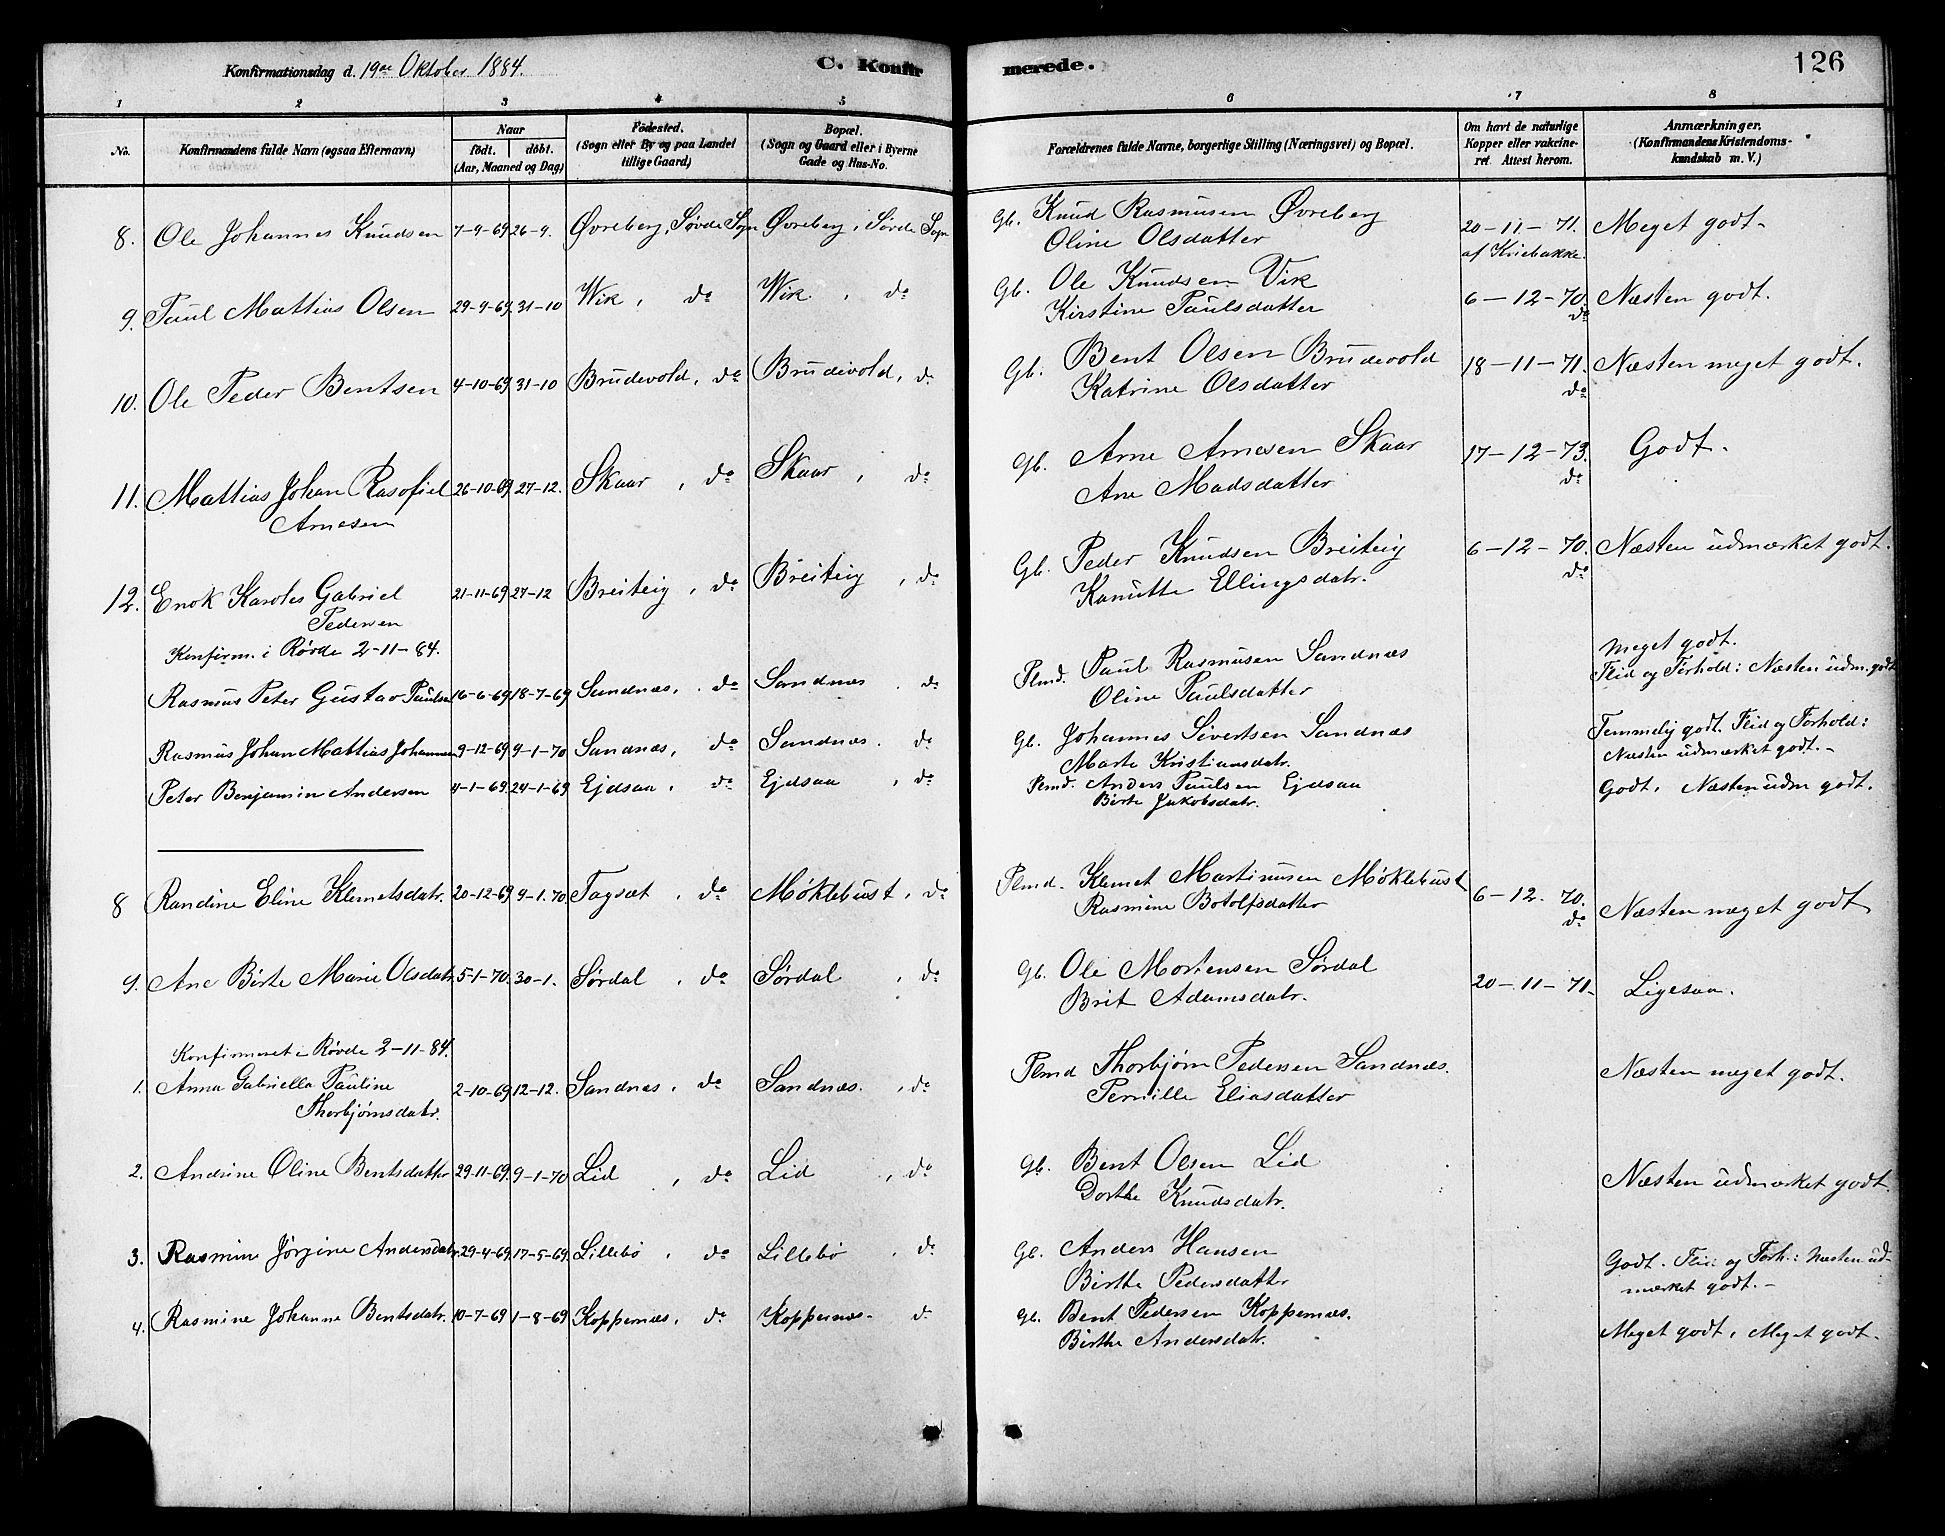 Konfirmationsdag d. 19de Oktober 1884.
C. Konfirmerede.
126
1 2 3 4 5 6 7 8
No.
Konfirmandens fulde Navn (ogsaa Efternavn)
Naar
födt. döbt.
(Aar, Maaned og Dag)
Födested.
(Sogn eller By og paa Landet
tillige Gaard)
Bopæl.
(Sogn og Gaard eller i Byerne
Gade og Hus-No.
Forældrenes fulde Navne, borgerlige Stilling (Næringsvei) og Bopæl.
Om havt de naturlige
Kopper eller vakcine-
ret. Attest herom.
Anmærkninger.
(Konfirmandens Kristendoms-
kundskab m. V.)
8. Ole Johannes Knudsen 7-9-69 26-9. Øvreberg, Søvde Sogn Øvreberg, Søvde Sogn Gb. Knud Rasmusen Øvreberg 20-11-71. Meget godt.
Oline Olsdatter af Knebakke.
9. Paul Mattias Olsen 29-9-69 31-10 Wik, do Wik, do Gb. Ole Knudsen Vik 6-12-70. Næsten godt.
Kirstine Paulsdatter do
10. Ole Peder Bentsen 4-10-69 31-10 Brudevold, do Brudevold, do Gb. Bent Olsen Brudevold 18-11-71. Næsten meget godt.
Katrine Olsdatter do
11. Mattias Johan Rasofiel 26-10-69 27-12. Skaar, do Skaar, do Gb. Arne Arnesen Skaar 17-12-73. Godt.
Arnesen Ane Madsdatter do
12. Enok Karoles Gabriel 21-11-69 27-12 Breiteig, do Breiteig, do Gb. Peder Knudsen Breiteig 6-12-70. Næsten udmærket godt.
Pedersen Kanutte Ellingsdatr. do
Konfirm. i Røvde 2-11-84.
Rasmus Peter Gustav Paulsen 16-6-69 18-7-69 Sandnæs, do Sandnæs, do Plmd. Paul Rasmusen Sandnæs Meget godt.
Oline Paulsdatter Flid og Forhold: Næsten udm. godt
Rasmus Johan Mattias Johannsen 9-12-69 9-1-70 Sandnæs, do Sandnæs. do Gb. Johannes Sivertsen Sandnæs Temmelig godt. Flid og Forhold:
Marte Kristiansdatr. Næsten udmærket godt.-
Peter Benjamin Andersen 4-1-69. 24-1-69 Ejdsaa, do Ejdsaa, do Plmd. Anders Paulsen Ejdsaa Godt. Næsten udm godt.
Birte Jakobsdatr.
8 Randine Eline Klemetsdatr. 20-12-69 9-1.70 Fagsæt, do Møklebust, do Plmd. Klemet Martinusen Møklebust 6-12. 70. Næsten meget godt
Rasmine Botolfsdatter do
9. Ane Birte Marie Olsdatr. 5-1-70. 30-1. Sørdal, do Sørdal, do Gb. Ole Mortensen Sørdal 20-11-71. Ligesaa.
Brit Adamsdatr.
Konfirmeret i Røvde 2-11-84.
1. Anna Gabriella Pauline 2-10-69 12-12. Sandnæs, do Sandnæs., do Plmd Thorbjørn Pedersen Sandnæs. Næsten meget godt.
Thorbjørnsdatr. Pernille Eliasdatter
2. Andrine Oline Bentsdatter 29-11-69. 9-1-70 Lid, do Lid, do Gb. Bent Olsen Lid Næsten udmærket godt.
Dorthe Knudsdatr.
3. Rasmine Jørgine Andersdatr. 29-4-69. 17-5-69. Lillebø, do Lillebø, do Gb. Anders Hansen Godt. Flid og Forh.: Næsten ud-
Birthe Pedersdatter mærket godt.-
4. Rasmine Johanne Bentsdatr. 10-7-69 1-8-69 Koppernæs, do Koppernæs- do Gb. Bent Pedersen Koppernæs. Meget godt, Meget godt.
Birthe Andersdatr.